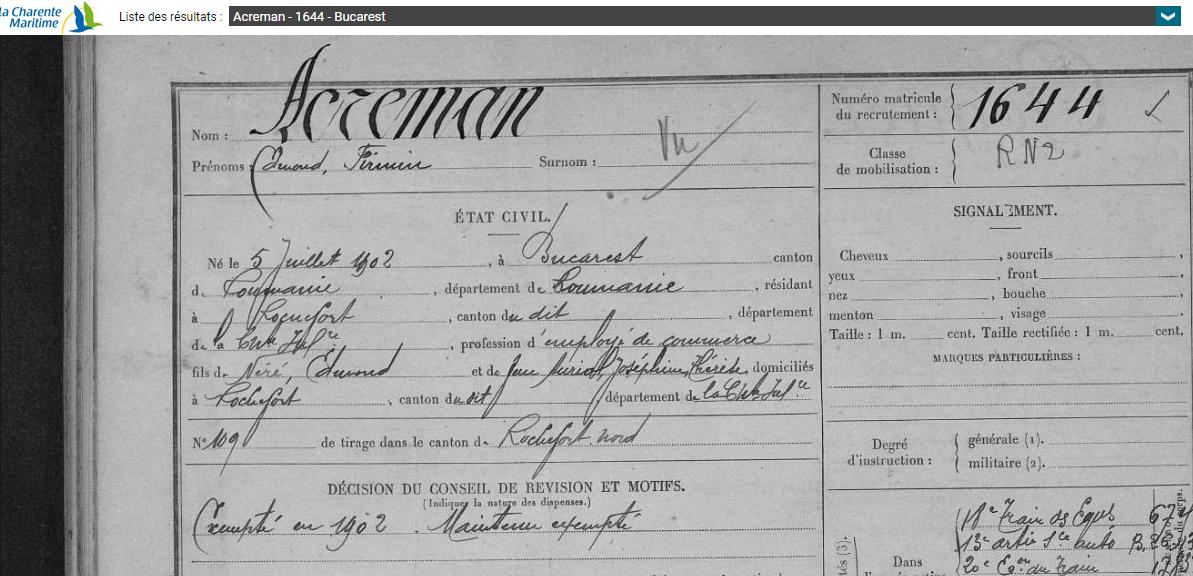 la Charente
Maritime
Liste des résultats : Acreman - 1644 - Bucarest
Nom : Acreman
Prénoms : Edmond, Firmin Surnom :
Vu
Numéro matricule
du recrutement : 1644
Classe
de mobilisation : RN2
ÉTAT CIVIL.
Né le 5 Juillet 1902, à Bucarest canton
d. Roumanie, département de Roumanie, résidant
à Rochefort, canton du dit, département
de la Chte Infre, profession d'employé de commerce
fils d. Néré, Edmond et de Joséphine, Thérèse domiciliés
à Rochefort, canton du dit, département de la Chte Infre
N° 109 de tirage dans le canton d. Rochefort nord
DÉCISION DU CONSEIL DE REVISION ET MOTIFS.
(Indiquer la nature des dispenses.)
Exempté en 1902. Maintenu exempté
SIGNALEMENT.
Cheveux , sourcils ,
yeux , front ,
nez , bouche ,
menton , visage .
Taille : 1 m. cent. Taille rectifiée : 1 m. cent.
MARQUES PARTICULIÈRES :
Degré
d'instruction :
générale (1).
militaire (2).
Dans
18e Train des Eqes
13e artie auto
20e Eon du Train